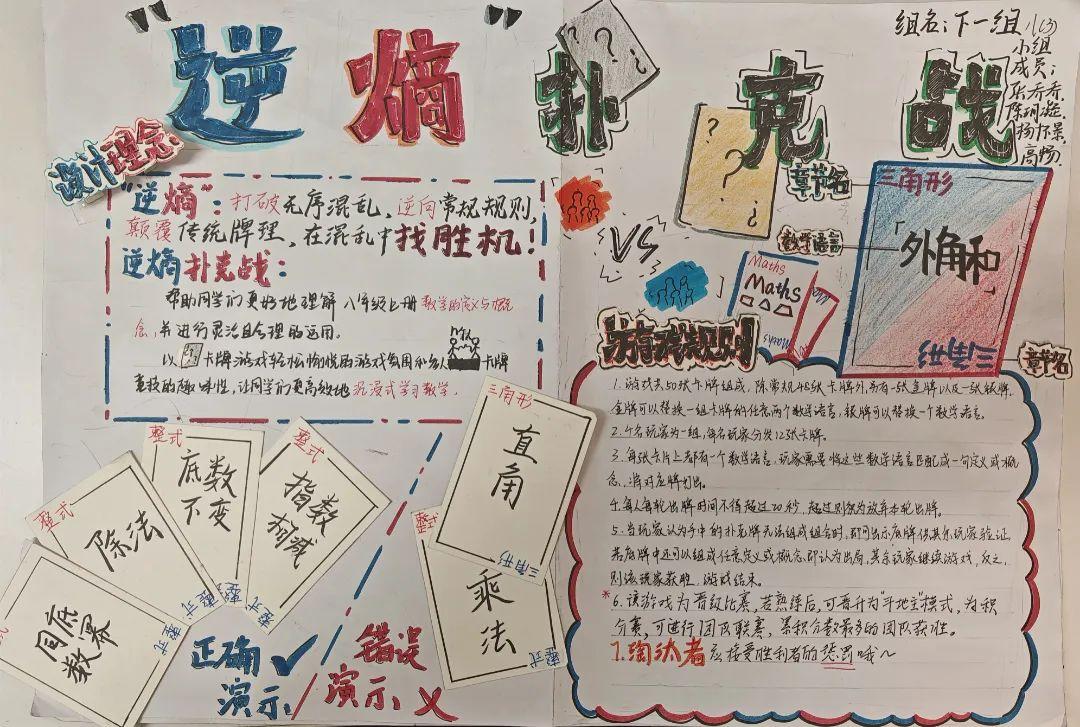 "逆熵"扑克战
组名:下一组
小组
成员:
设计理念
"逆熵":打破无序混乱,逆向常规规则,
颠覆传统牌理,在混乱中找胜机!
逆熵扑克战:
帮助同学们更好地理解八年级上册数学的定义与概
念,并进行灵活且合理的运用。
以卡牌游戏轻松愉悦的游戏氛围和多人卡牌
竞技的趣味性,让同学们更高效地沉浸式学习数学。
? ? ?
? ? ?
VS
Maths
Maths
Maths
章节名
数学语言
三角形
「外角和」
三角形
章节名
游戏规则
1.游戏共50张卡牌组成,除常规48张卡牌外,另有一张金牌以及一张银牌,
金牌可以替换一组卡牌的任意两个数学语言,银牌可以替换一个数学语言。
2.4名玩家为一组,每名玩家分发12张卡牌。
3.每张卡片上都有一个数学语言,玩家需要将这些数学语言匹配成一句定义或概
念,将对应牌打出。
4.每人每轮出牌时间不得超过20秒,超过则视为放弃本轮出牌。
5.当玩家认为手中的扑克牌无法组成组合时,即可出示底牌供其余玩家验证,
若底牌中还可以组成任意定义或概念,即认为出局,其余玩家继续游戏,反之,
则该玩家获胜,游戏结束。
*6.该游戏为晋级比赛,若熟练后,可晋升为"斗地主"模式,为积
分赛,可进行团队联赛,累积分数最多的团队获胜。
7.淘汰者应接受胜利者的惩罚哦~
整式
同底
数幂
整式
整式
除法
整式
整式
底数
不变
整式
整式
指数
相减
整式
三角形
直角
三角形
整式
乘法
整式
正确✓
演示
错误
演示 ×